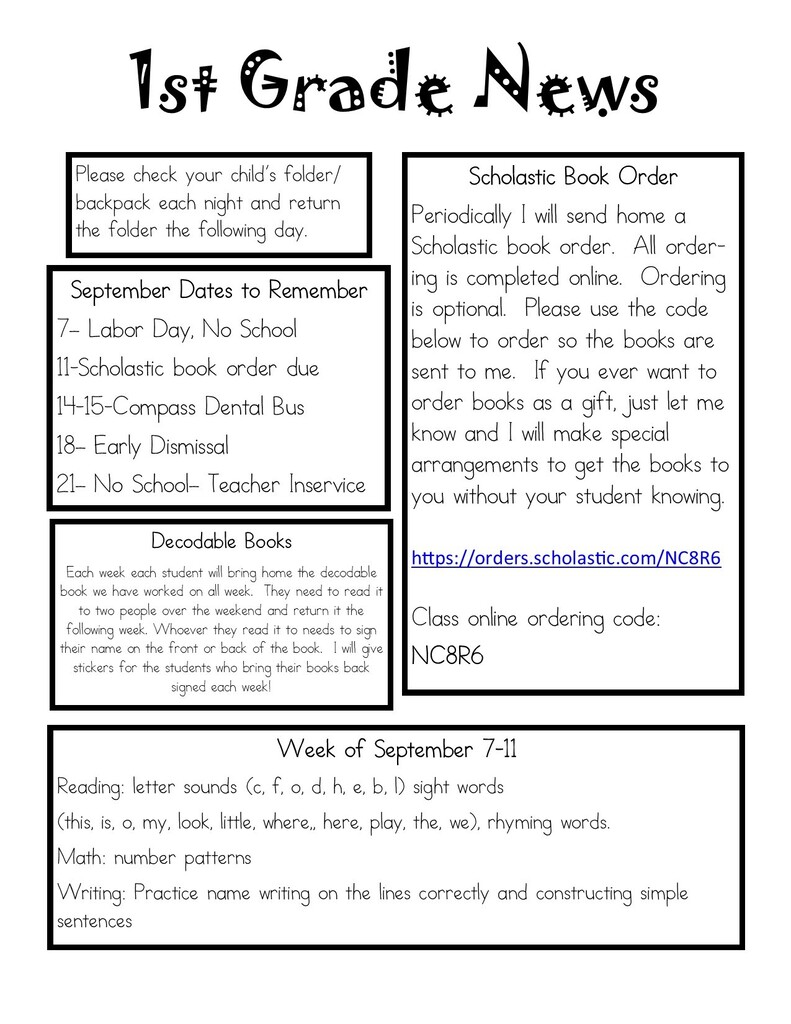 1st Grade News
Please check your child's folder/
backpack each night and return
the folder the following day.
September Dates to Remember
7– Labor Day, No School
11-Scholastic book order due
14-15-Compass Dental Bus
18– Early Dismissal
21– No School– Teacher Inservice
Decodable Books
Each week each student will bring home the decodable
book we have worked on all week.  They need to read it
to two people over the weekend and return it the
following week. Whoever they read it to needs to sign
their name on the front or back of the book.  I will give
stickers for the students who bring their books back
signed each week!
Scholastic Book Order
Periodically I will send home a
Scholastic book order.  All order-
ing is completed online.  Ordering
is optional.  Please use the code
below to order so the books are
sent to me.  If you ever want to
order books as a gift, just let me
know and I will make special
arrangements to get the books to
you without your student knowing.
https://orders.scholastic.com/NC8R6
Class online ordering code:
NC8R6
Week of September 7-11
Reading: letter sounds (c, f, o, d, h, e, b, l) sight words
(this, is, o, my, look, little, where,, here, play, the, we), rhyming words.
Math: number patterns
Writing: Practice name writing on the lines correctly and constructing simple
sentences